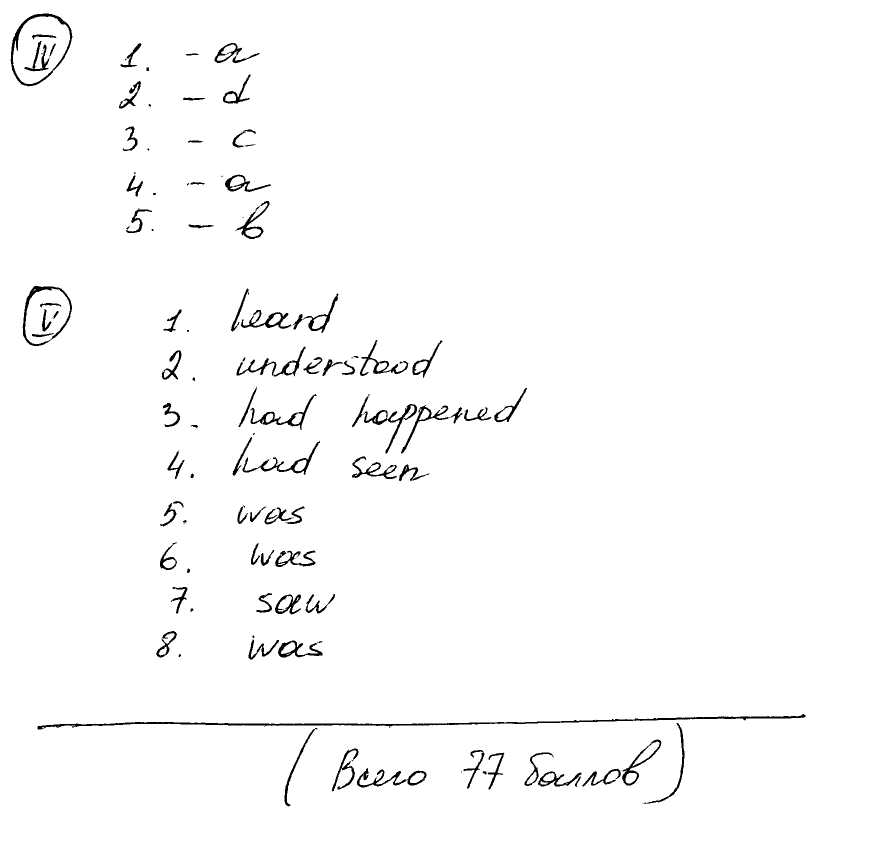 IV
1. - a
2. - d
3. - c
4. - a
5. - b
V
1. heard
2. understood
3. had happened
4. had seen
5. was
6. was
7. saw
8. was
(Всего 77 баллов)